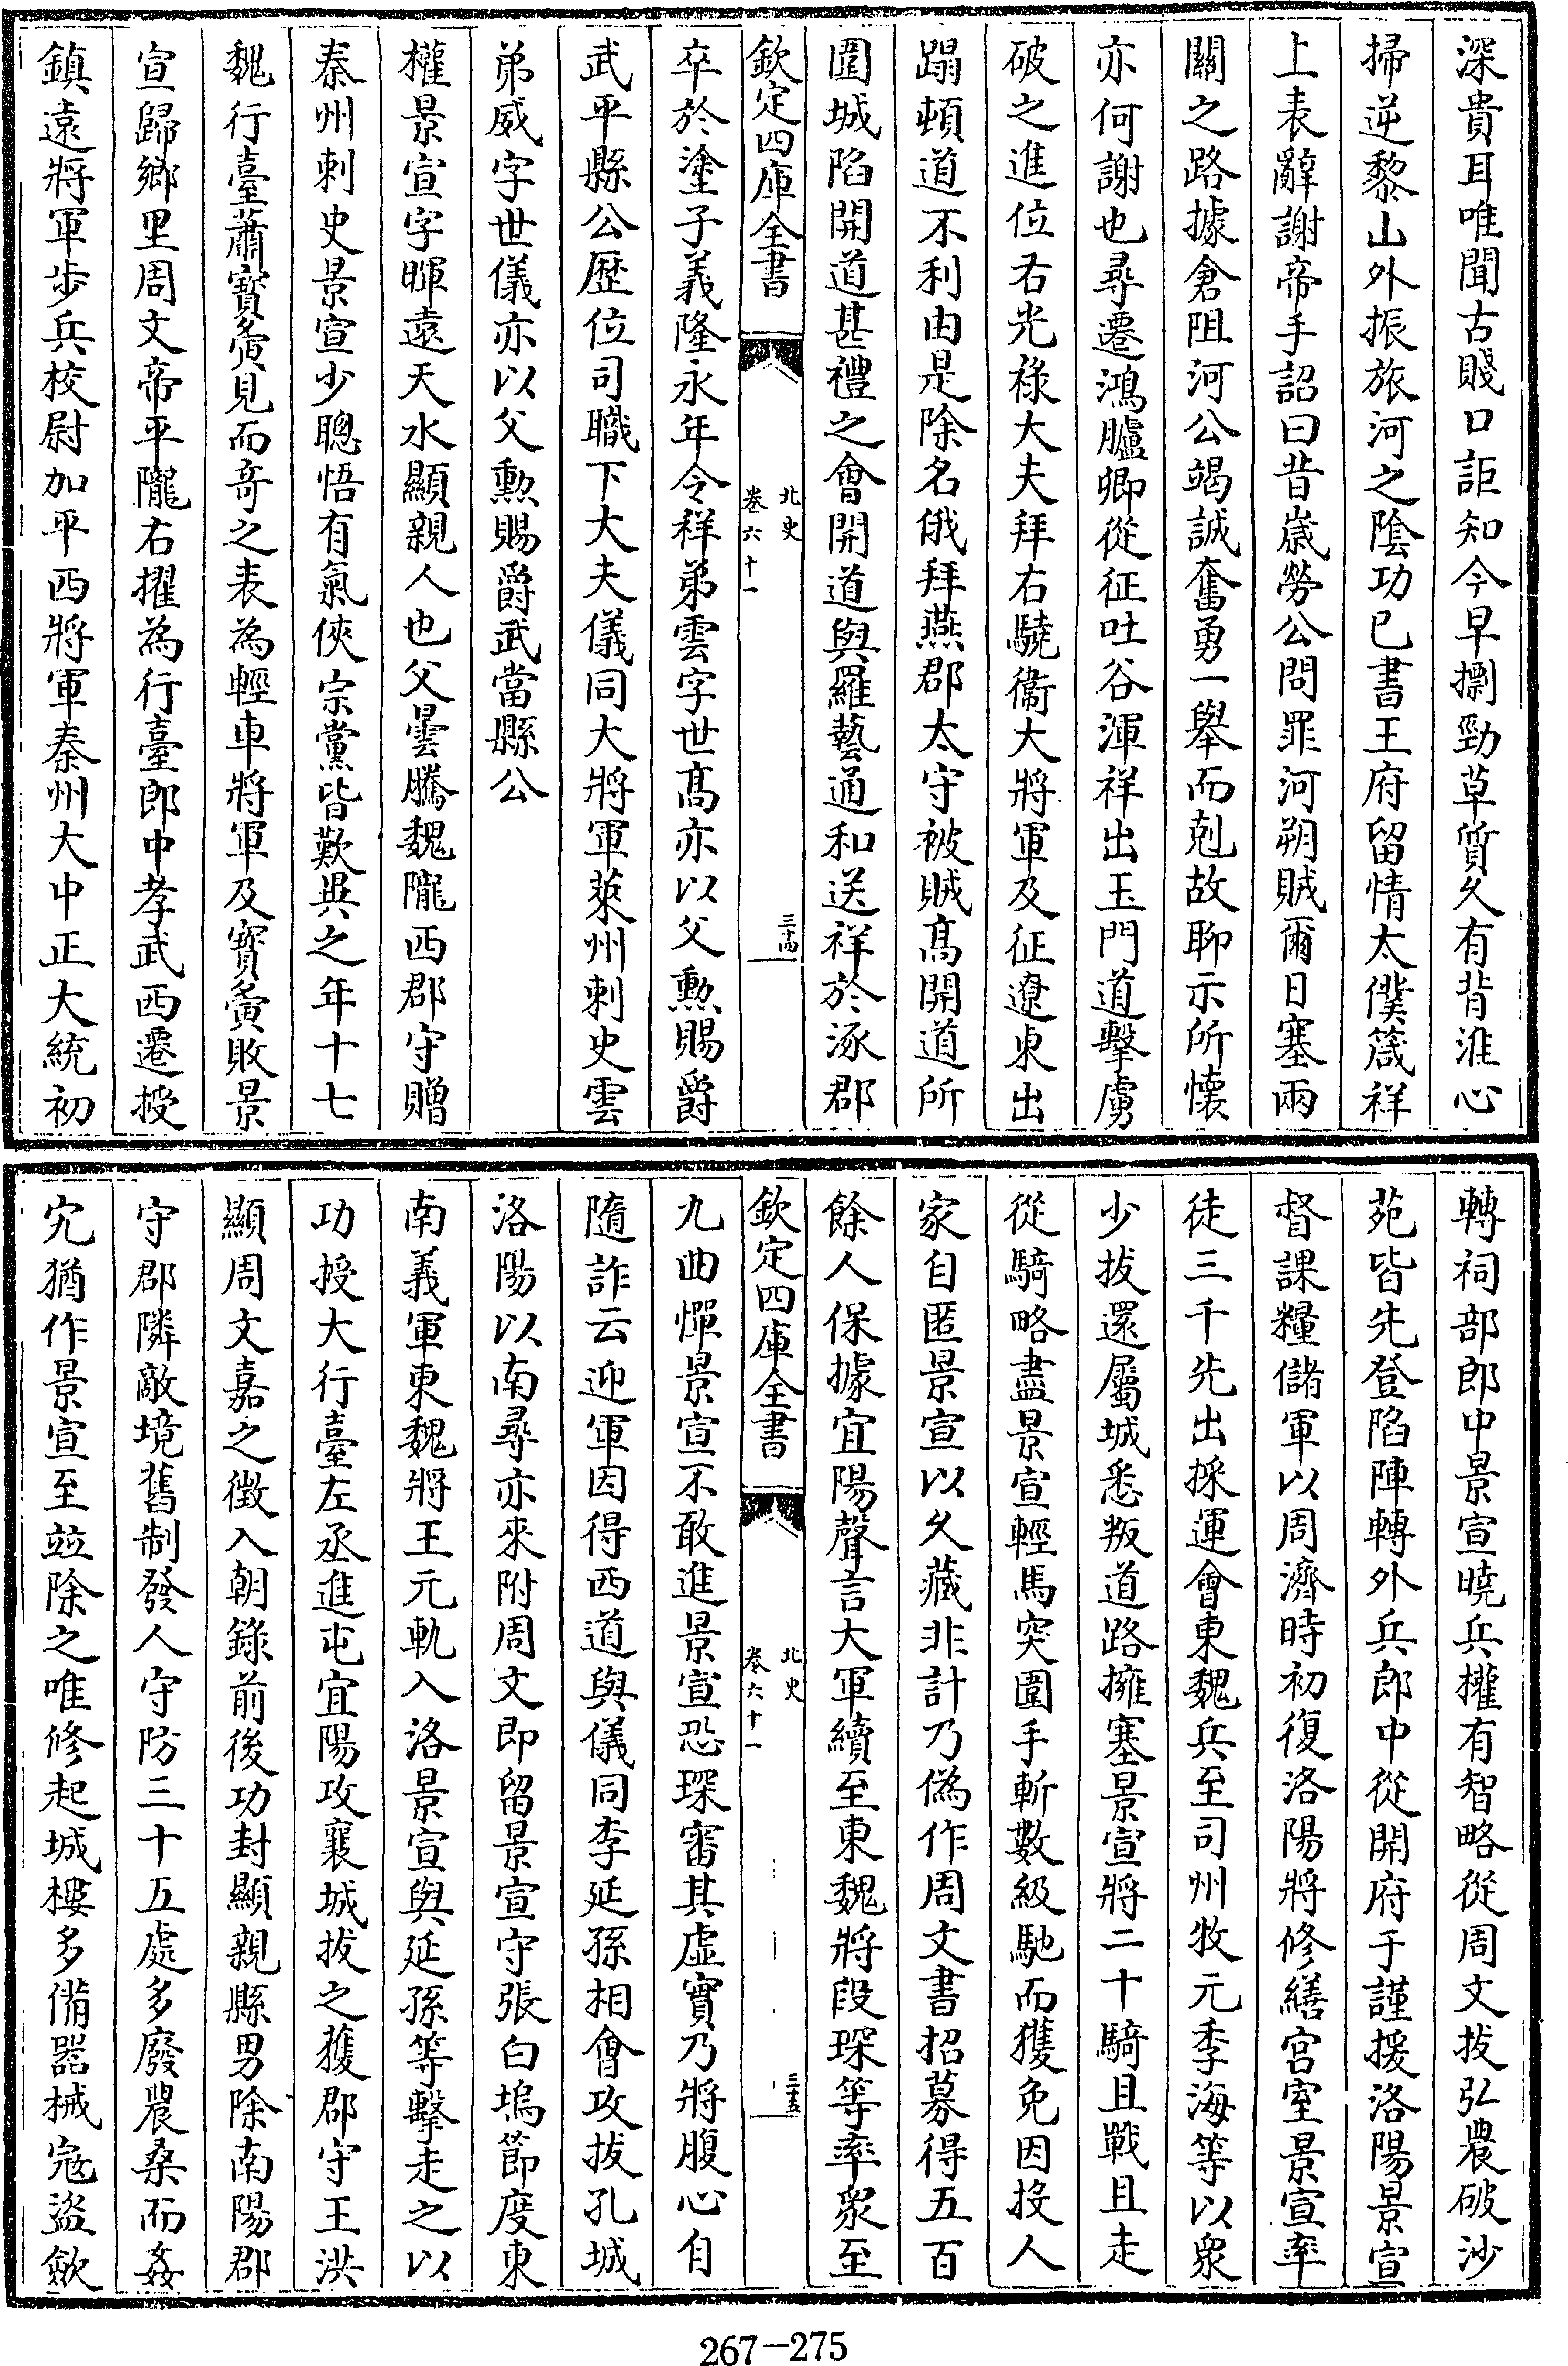 深貴耳唯聞古賤口詎知今早摽勁草質久有背淮心
掃逆黎山外振旅河之陰功已書王府留情太僕箴祥
上表辭謝帝手詔曰昔嵗勞公問罪河朔賊爾日塞兩
關之路據倉阻河公竭誠奮勇一舉而剋故聊示所懐
亦何謝也尋遷鴻臚卿從征吐谷渾祥出玉門道擊虜
破之進位右光祿大夫拜右驍衛大將軍及征遼東出
蹋頓道不利由是除名俄拜燕郡太守被賊髙開道所
圍城陷開道甚禮之會開道與羅藝通和送祥於涿郡
欽定四庫全書
北史
卷六十一
三十四
卒於塗子義隆永年令祥弟雲字世髙亦以父勲賜爵
武平縣公歴位司職下大夫儀同大將軍萊州刺史雲
弟威字世儀亦以父勲賜爵武當縣公
權景宣字暉遠天水顯親人也父曇騰魏隴西郡守贈
秦州刺史景宣少聰悟有氣俠宗黨皆歎異之年十七
魏行臺蕭寳夤見而奇之表為輕車將軍及寳夤敗景
宣歸鄉里周文帝平隴右擢為行臺郎中孝武西遷授
鎮遠將軍歩兵校尉加平西將軍秦州大中正大統初
轉祠部郎中景宣曉兵權有智略從周文拔弘農破沙
苑皆先登陷陣轉外兵郎中從開府于謹援洛陽景宣
督課糧儲軍以周濟時初復洛陽將修繕宫室景宣率
徒三千先出採運會東魏兵至司州牧元季海等以衆
少拔還屬城悉叛道路擁塞景宣將二十騎且戰且走
從騎略盡景宣輕馬突圍手斬數級馳而獲免因投人
家自匿景宣以久藏非計乃偽作周文書招募得五百
餘人保據宜陽聲言大軍續至東魏將段琛等率衆至
欽定四庫全書
北史
卷六十一
三十五
九曲憚景宣不敢進景宣恐琛審其虚實乃將腹心自
隨詐云迎軍因得西道與儀同李延孫相會攻拔孔城
洛陽以南尋亦來附周文即留景宣守張白塢節度東
南義軍東魏將王元軌入洛景宣與延孫等擊走之以
功授大行臺左丞進屯宜陽攻襄城拔之獲郡守王洪
顯周文嘉之徴入朝錄前後功封顯親縣男除南陽郡
守郡隣敵境舊制發人守防三十五處多廢農桑而姦
宄猶作景宣至竝除之唯修起城樓多備器械寇盜歛
267-275